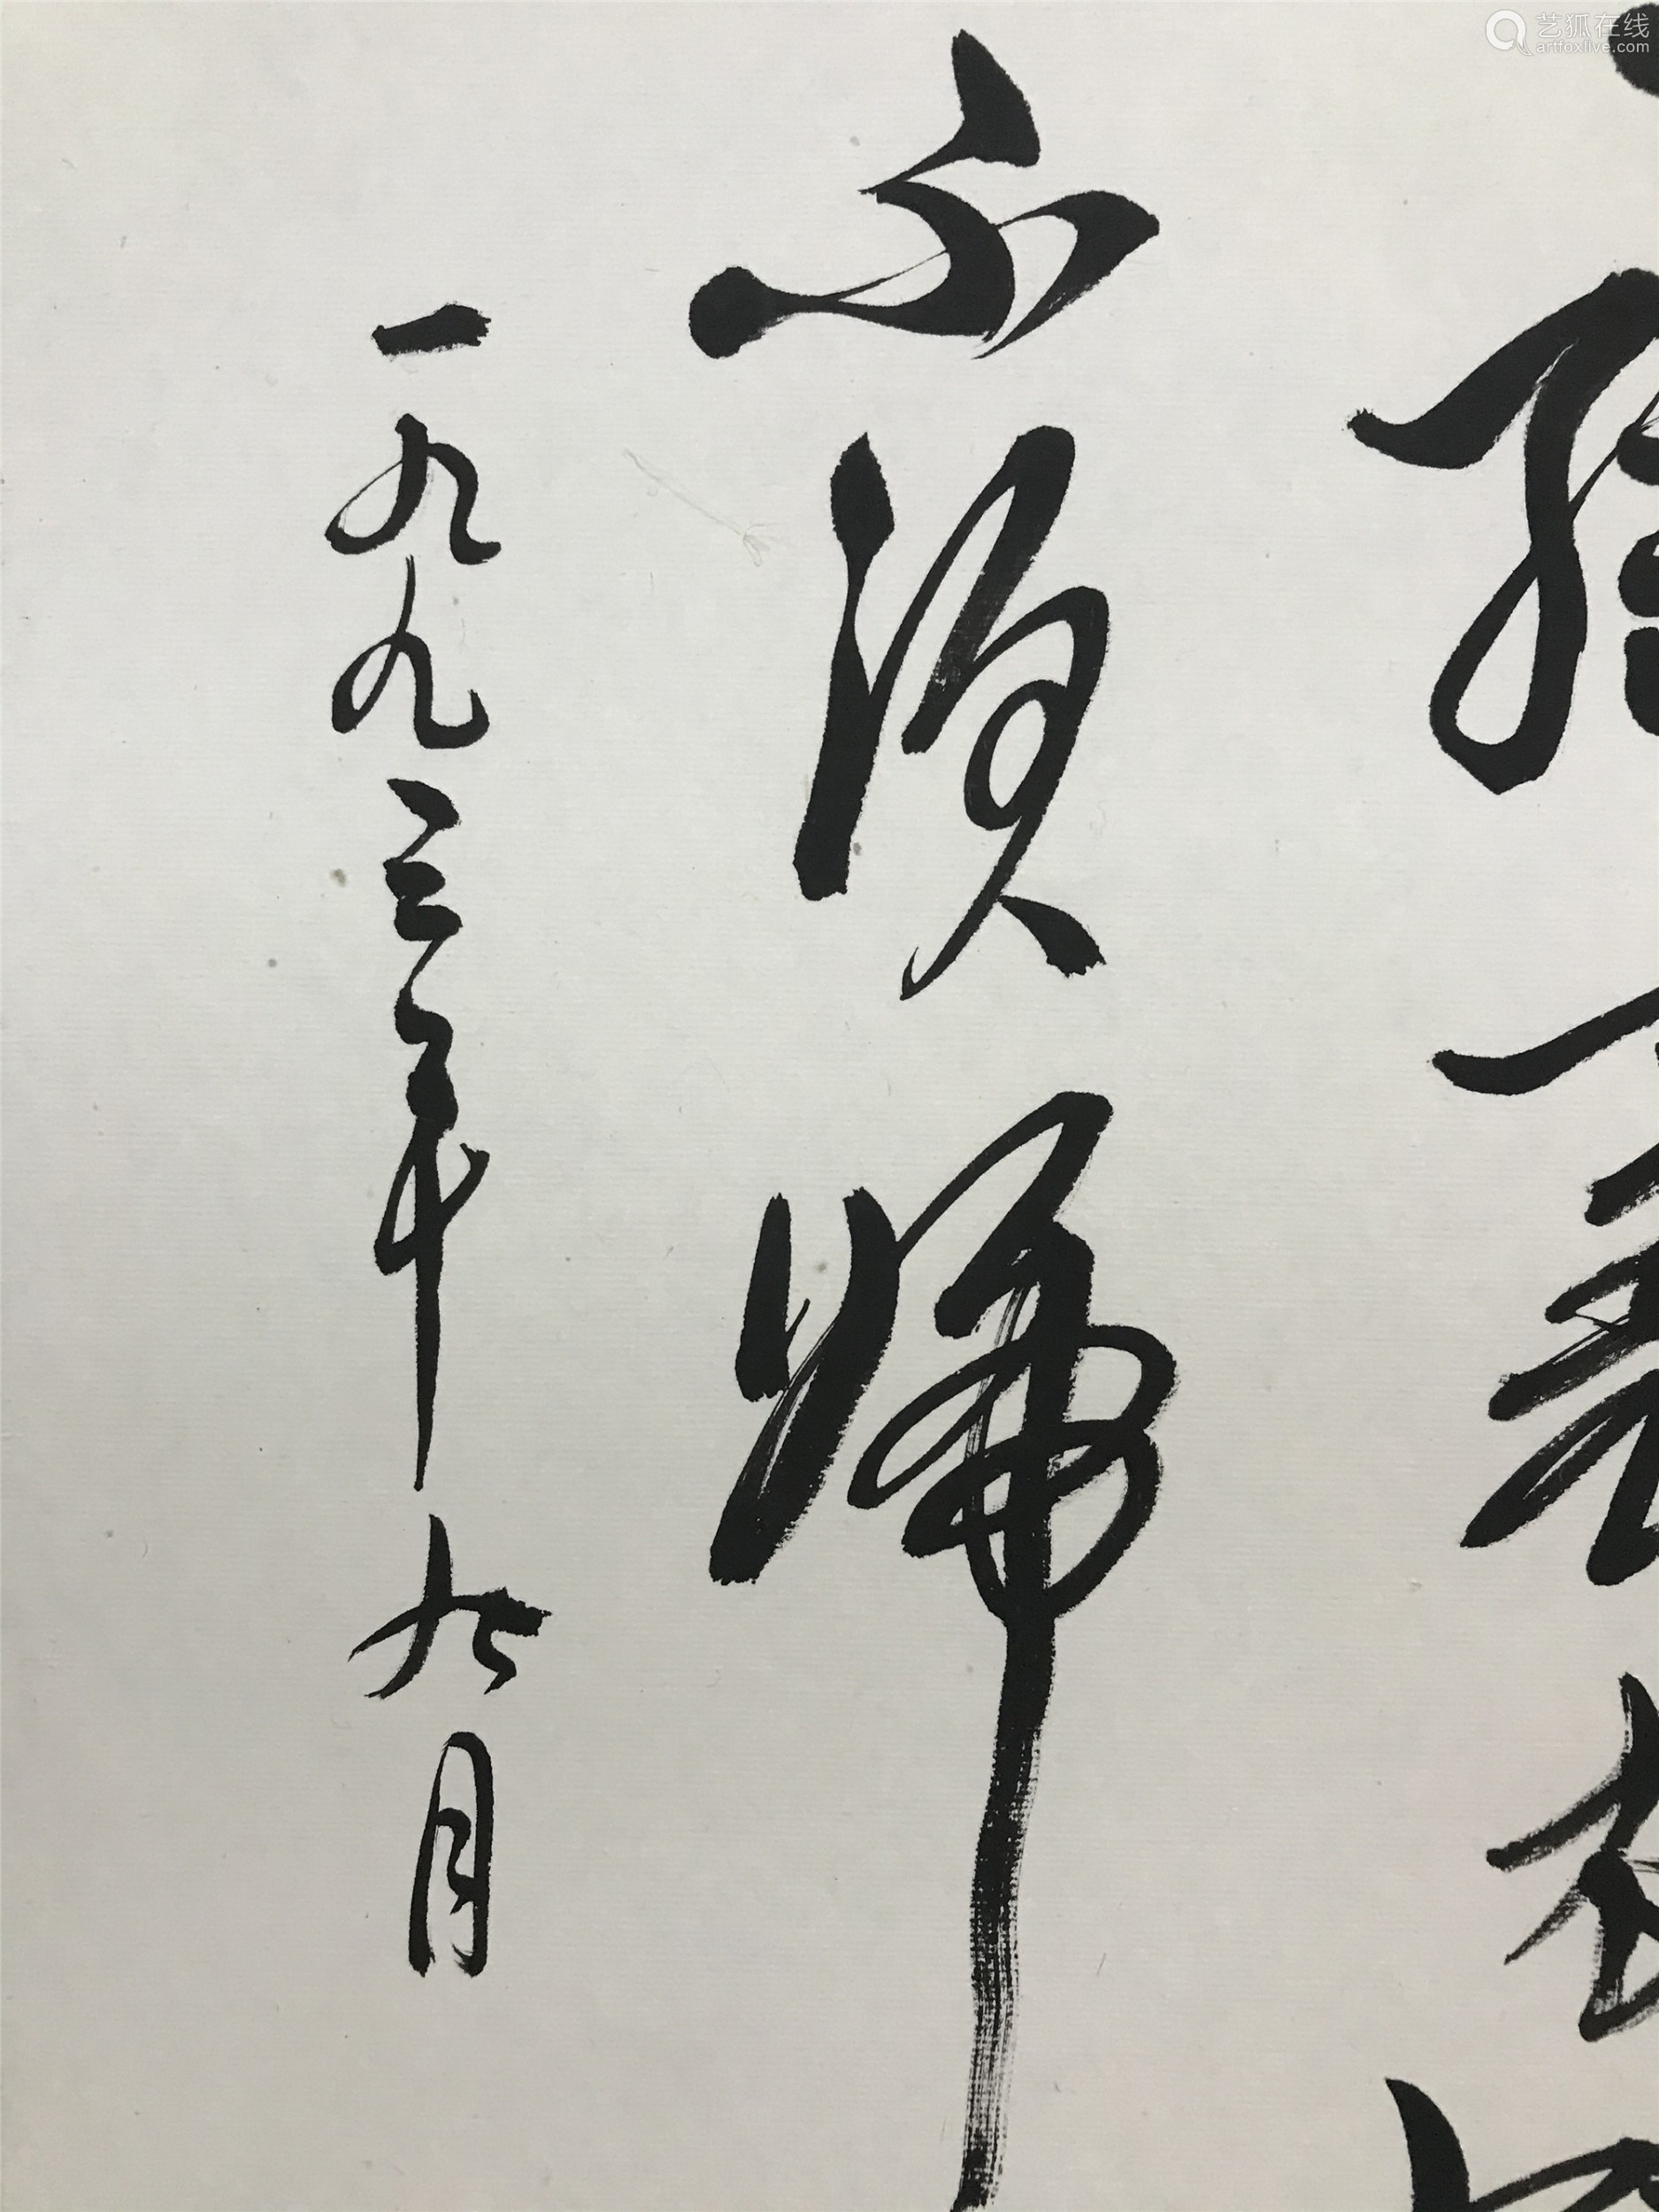 绿蓑衣
不须归
一九九三年九月
艺狐在线
artfoxlive.com